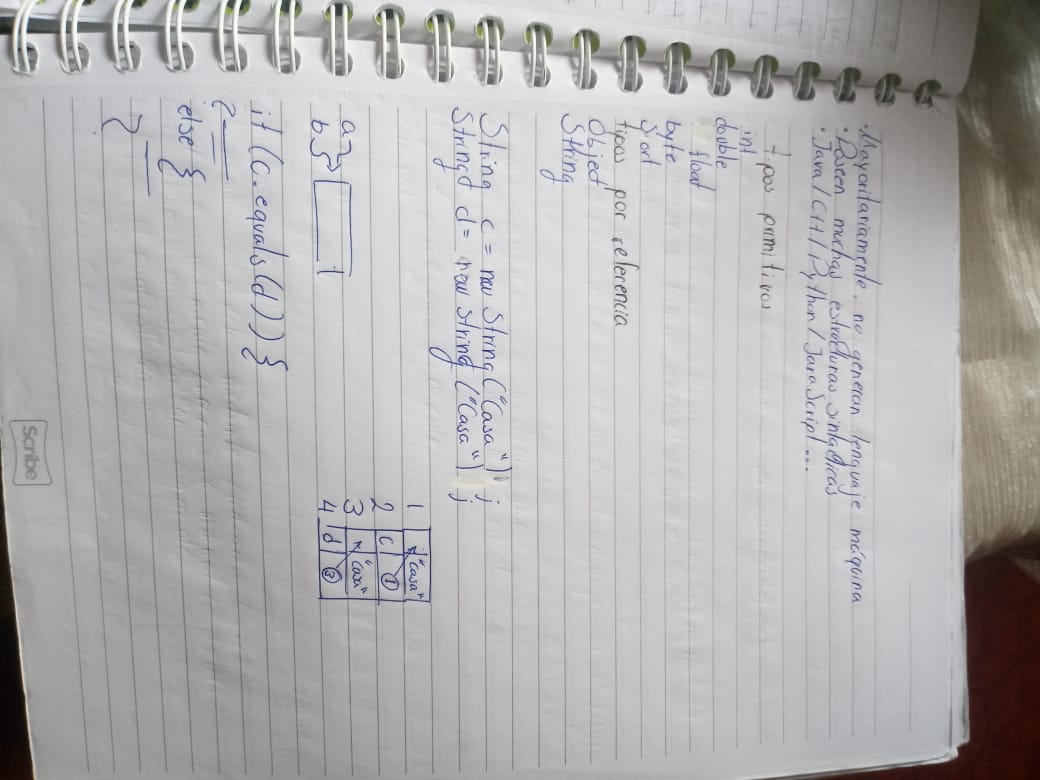 · Mayoritariamente no generan lenguaje máquina
· Poseen muchas estructuras sintacticas
· Java / C++ / Python / JavaScript...
tipos primitivos
int
double
float
byte
short
tipos por referencia
Object
String
String c = new String("Casa");
String d = new String("Casa");
1 "Casa"
2 c 1
3 "Casa"
4 d 3
a
b
if (c.equals(d)) {
}
else {
}
Scribe